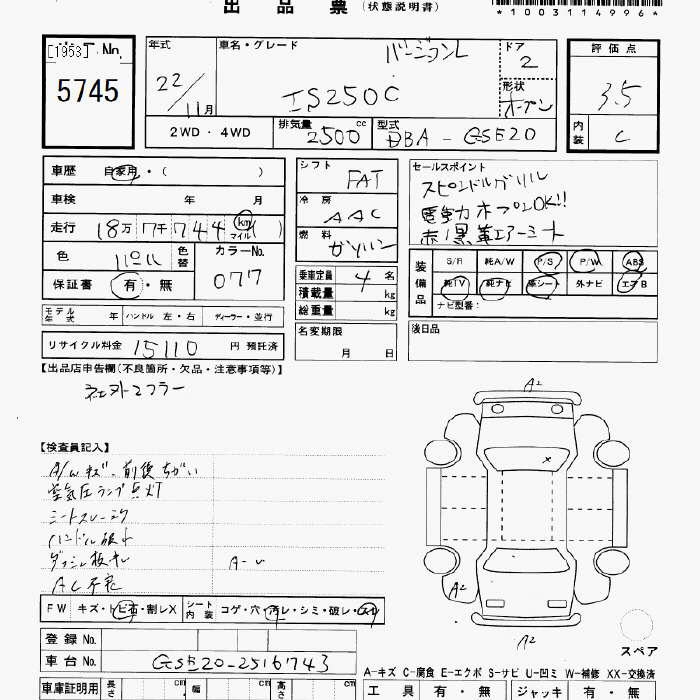 出品票 (状態説明書)
*1003114996*
[1953] No. 5745
年式 22/11月
車名・グレード バージョンL
IS250C
ドア 2
形状 オープン
評価点 3.5
内装 C
2WD・4WD
排気量 2500 cc
型式 DBA-GSE20
車歴 自家用・( )
車検 年 月
走行 18万7千744 km マイル ( )
色 パール 色替
カラーNo. 077
保証書 有・無
シフト FAT
冷房 AAC
燃料 ガソリン
乗車定員 4 名
積載量 kg
総重量 kg
セールスポイント
スピンドルグリル
電動オープンOK!!
赤/黒革エアーシート
装備品 S/R 純A/W P/S P/W ABS
純TV 純ナビ 革シート 外ナビ エアB
ナビ型番:
モデル年式 年 ハンドル 左・右 ディーラー・並行
名変期限 月 日
後日品
リサイクル料金 15110 円 預託済
【出品店申告欄(不良箇所・欠品・注意事項等)】
社外マフラー
【検査員記入】
A/Wキズ、前後ちがい
空気圧ランプ点灯
シートスレ
ハンドル
A-U
AC不良
FW キズ・トビ石・割レX シート内装 コゲ・穴・汚レ・シミ・破レ・スレ
登録No.
車台No. GSE20-2516743
車庫証明用 長さ cm 幅 cm 高さ cm
A2
×
A2
A2
スペア
A-キズ C-腐食 E-エクボ S-サビ U-凹ミ W-補修 XX-交換済
工具 有・無 ジャッキ 有・無